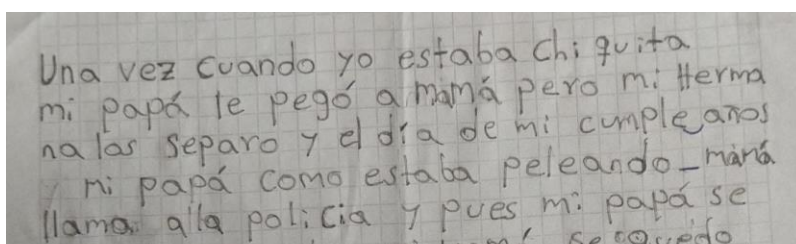 Una vez cuando yo estaba chiquita
mi papá le pegó a mamá pero mi Herma
na los separo y el dia de mi cumpleaños
y mi papá como estaba peleando_mamá
llama alla policia y pues mi papá se